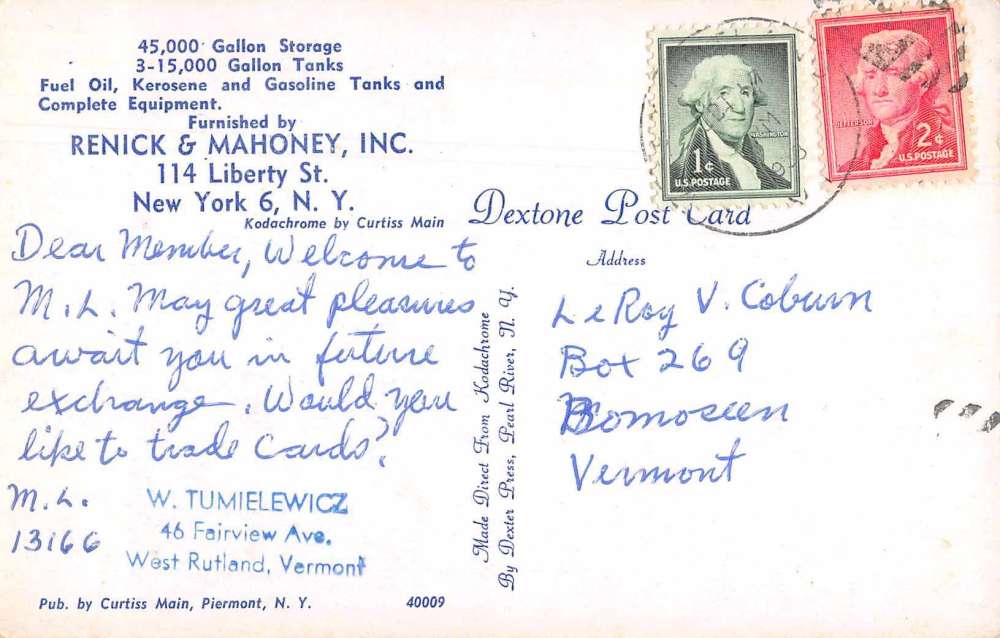 45,000 Gallon Storage
3-15,000 Gallon Tanks
Fuel Oil, Kerosene and Gasoline Tanks and
Complete Equipment.
Furnished by
RENICK & MAHONEY, INC.
114 Liberty St.
New York 6, N. Y.
Kodachrome by Curtiss Main
Dear Member, Welcome to
M.L. May great pleasures
await you in future
exchange. Would you
like to trade Cards?
M.L.
13166
W. TUMIELEWICZ
46 Fairview Ave.
West Rutland, Vermont
Pub. by Curtiss Main, Piermont, N. Y.
40009
Made Direct From Kodachrome
By Dexter Press, Pearl River, N. Y.
WASHINGTON
1¢
U.S. POSTAGE
JEFFERSON
2¢
U.S. POSTAGE
Dextone Post Card
Address
LeRoy V. Coburn
Box 269
Bomoseen
Vermont